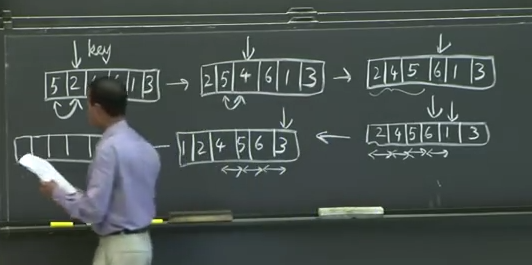 key
5 2 4 6 1 3 → 2 5 4 6 1 3 → 2 4 5 6 1 3
1 2 4 5 6 3 ← 2 4 5 6 1 3